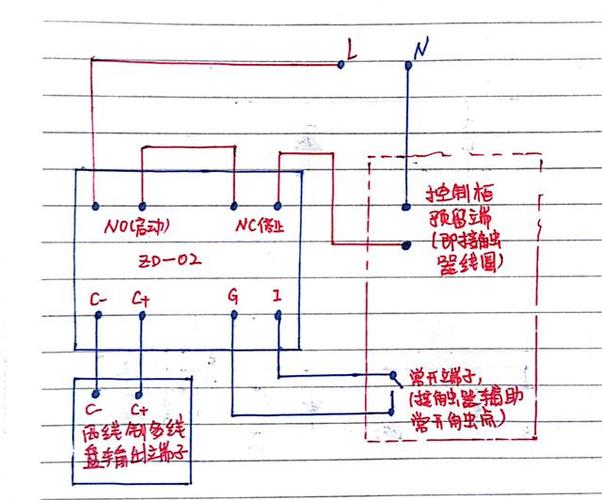 L N
NO(启动) NC停止
ZD-02
C- C+ G I
控制柜
预留端
(即接触
器线圈)
常开端子,
(接触器辅助
常开角虫点)
C- C+
两线制多线
盘输出端子